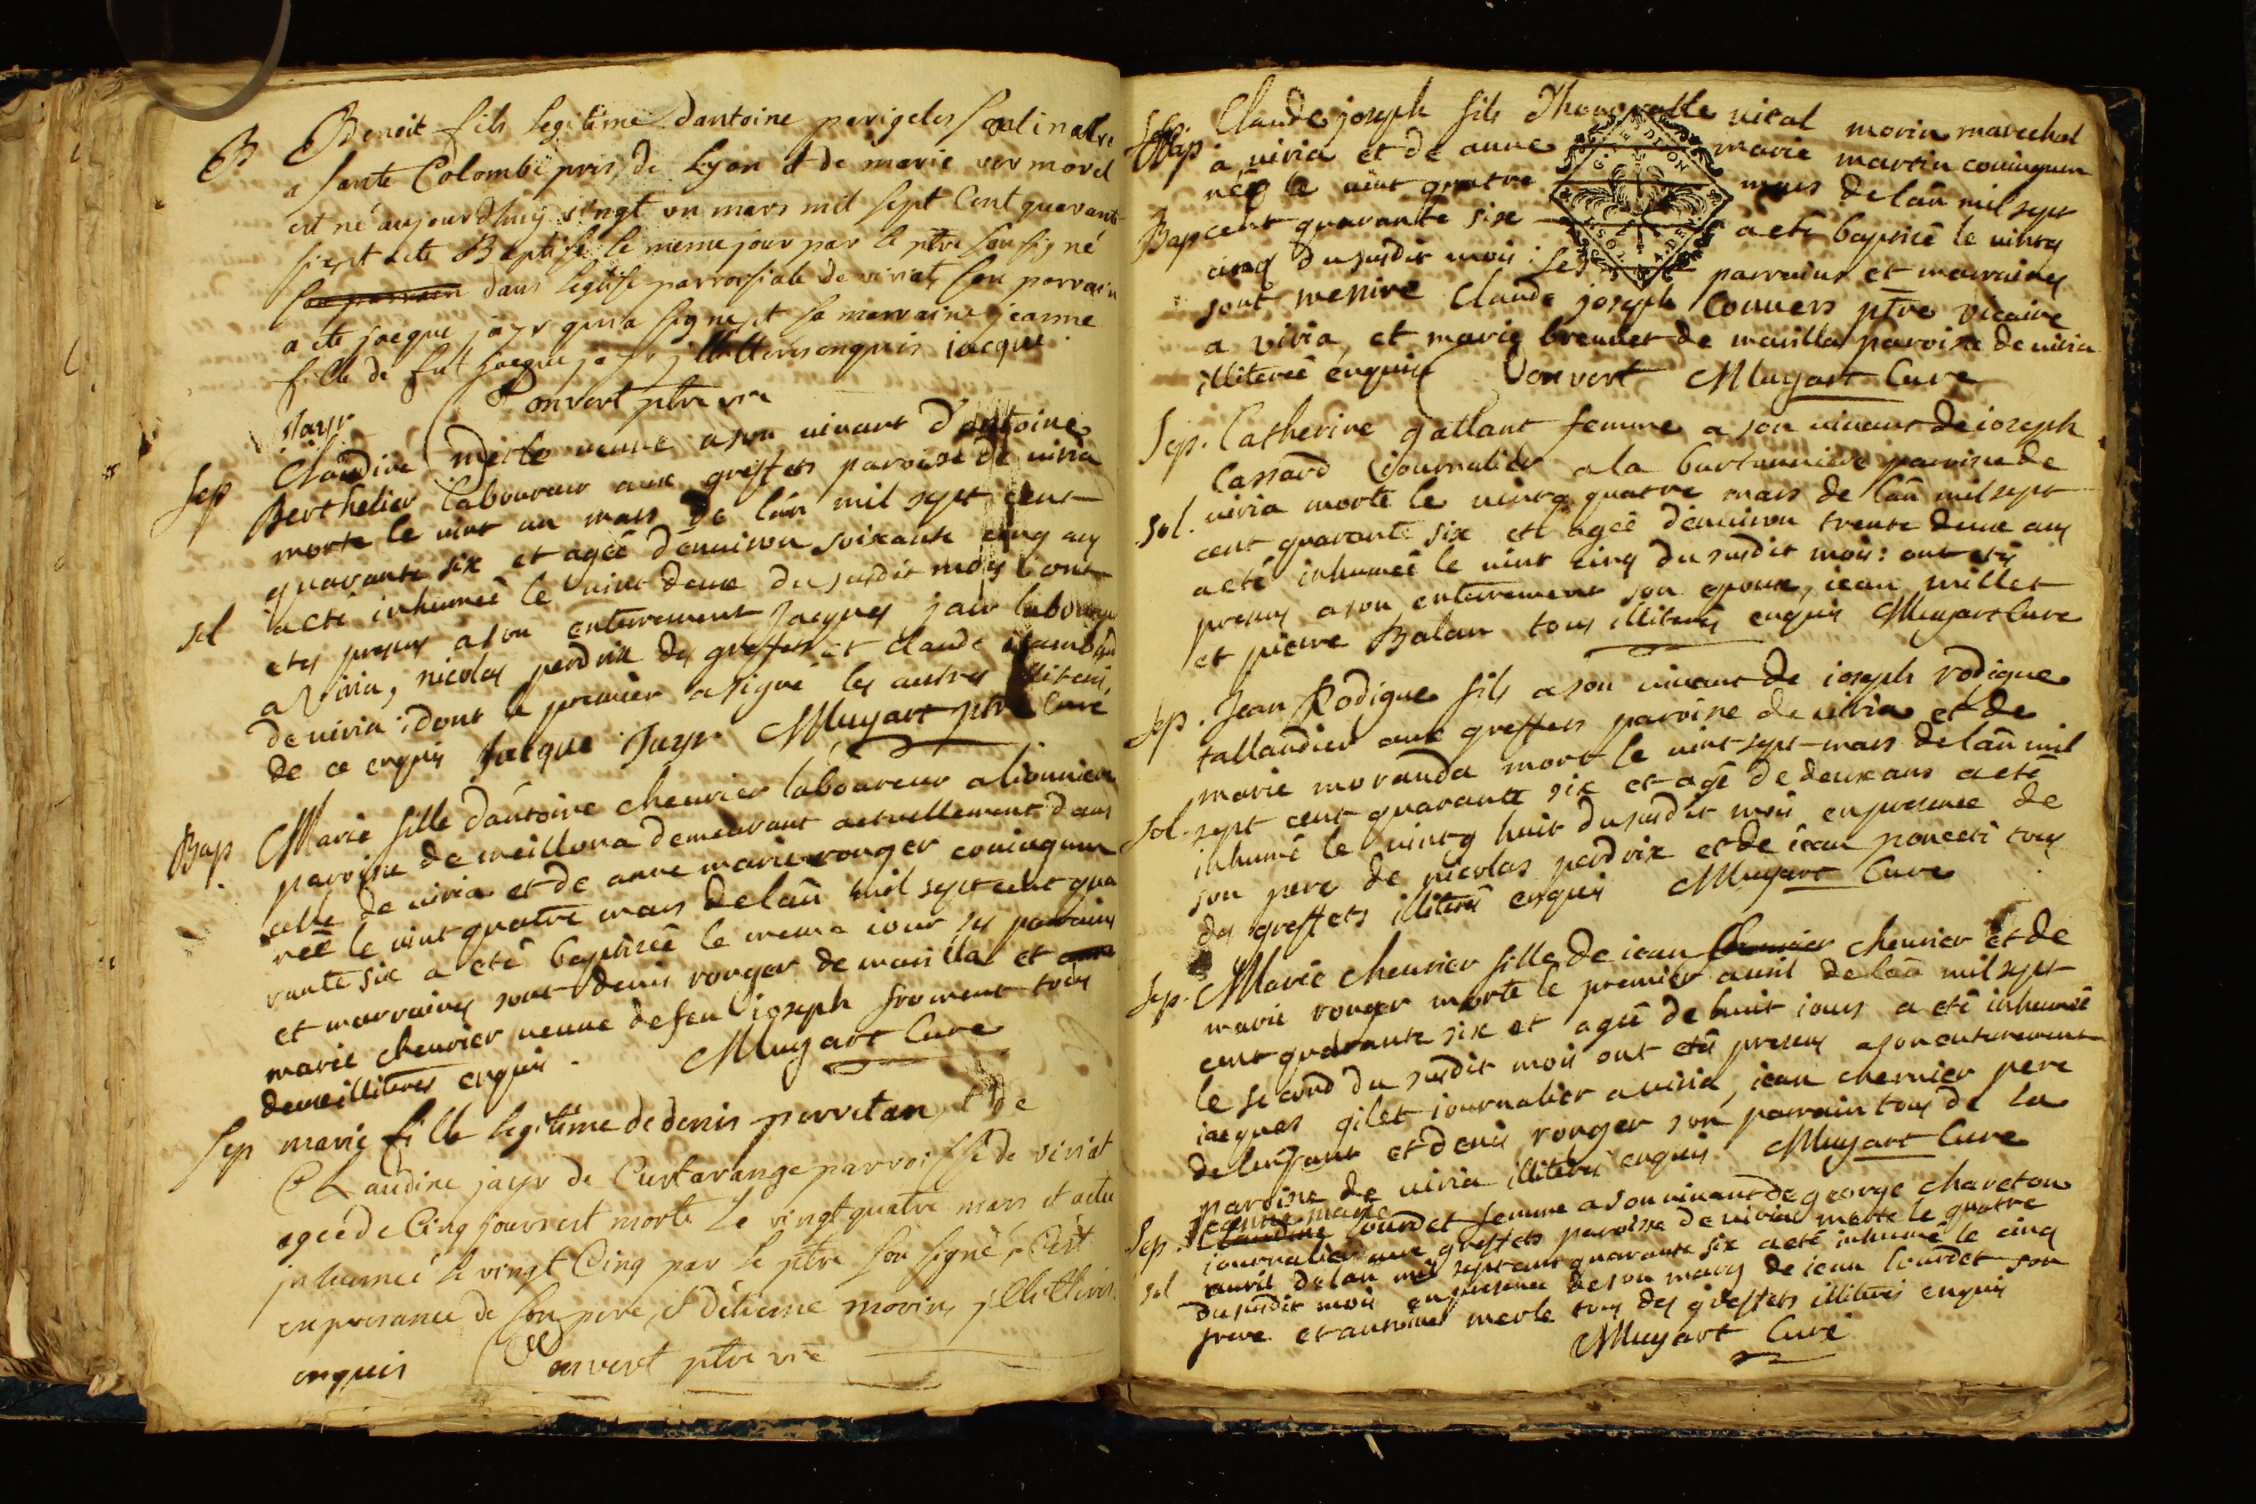 B Benoit fils legitime Dantoine perigeles
a sante Colombe pres de Lyon et de marie vermorel
est né aujourdhuij vingt un mars mil sept Cent quarante
six et a ete Baptisé le meme jour par le ptre sousigné
son parrain dans leglise parroissiale de viriat, son parrain
a ete jacque jayr qui a signe et sa marraine jeanne
fille de fut jacque jayr jllitteres enquis jacque
jayr Convert ptre vre
Sep Claudine merle veuve a son vivant d'antoine
Berthelier laboureur aux greffets paroisse de viria
morte le vint un mars de lan mil sept cent
quarante six et agée denviron soixante cinq ans
sol a eté inhumée le vint deux du susdit mois ont
etes presens a son enterrement jacques jair laboureur
a viria, nicolas perdrix des greffets et claude
de viria: dont le premier a signé les autres illiteres,
de ce enquis Jacque Jayr Muyart ptre Curé
Bap Marie fille dantoine chevrier laboureur a lionniere
paroisse de meillona demeurant actuellement dans
celle de viria et de anne marie ronger coniugum
néé le vint quatre mars de lan mil sept cent qua
rante six a eté baptisée le meme iour ses parrains
et marraines sont denis ronger de mavilla et
marie chevrier veuve de feu ioseph froment tous
deux illiteres enquis. Muyart Cure
Sep marie fille legitime de denis perretan et de
Claudine jayr de Curtarange parroisse de viriat
agée de Cinq jours est morte le vingt quatre mars et a ete
jnhumeé le vingt Cinq par le ptre sou signé, C'est
en presance de son pere, et d'etienne morins jllitteres
enquis Convert ptre vre
Bap Claude joseph fils Dhonorable vital morin marechal
a viria et de anne marie martin coniugum
néé le vint quatre mars de lan mil sept
Bap cent quarante six a eté baptisé le vint
cinq du susdit mois: ses parrains et marraines
sont messire Claude joseph Convers ptre vicaire
a viria, et marie brevet de mavilla paroisse de viria
illiterée enquise Convert Muyart Cure
GEN DE DIJON
Sep. Catherine gallant femme a son vivant de ioseph
Cassard journalier a la paroisse de
sol. viria morte le vint quatre mars de lan mil sept
cent quarante six et agée denviron trente deux ans
a eté inhumée le vint cinq du susdit mois: ont eté
presens a son enterrement son epoux, iean millet
et pierre Balan tous illiteres enquis Muyart Cure
Sep. Jean Rodigue fils a son vivant de ioseph rodigue
tallandier aux greffets paroisse de viria et de
marie moranda mort le vint sept mars de lan mil
sol. sept cent quarante six et agé de deux ans a eté
inhumé le vint huit du susdit mois en presence de
son pere de nicolas perdrix et de iean poncet tous
des greffets illiteres enquis Muyart Cure
Sep. Marie chevrier fille de iean chevrier et de
marie ronger morte le premier avril de lan mil sept
cent quarante six et agée de huit iours a eté inhumée
le second du susdit mois ont eté presens a son enterrement
iacques gilet iournalier a viria, iean chevrier pere
de lenfant et denis ronger son parrain tous de la
paroisse de viria illiteres enquis Muyart Cure
jeanne marie
Sep. Claudine lourdet femme a son vivant de george chareton
iournalier aux greffets paroisse de viria morte le quatre
sol avril de lan mil sept cent quarante six a eté inhumé le cinq
du susdit mois en presence de son mary de iean lourdet son
frere et antoine merle tous des greffets illiteres enquis
Muyart Curé